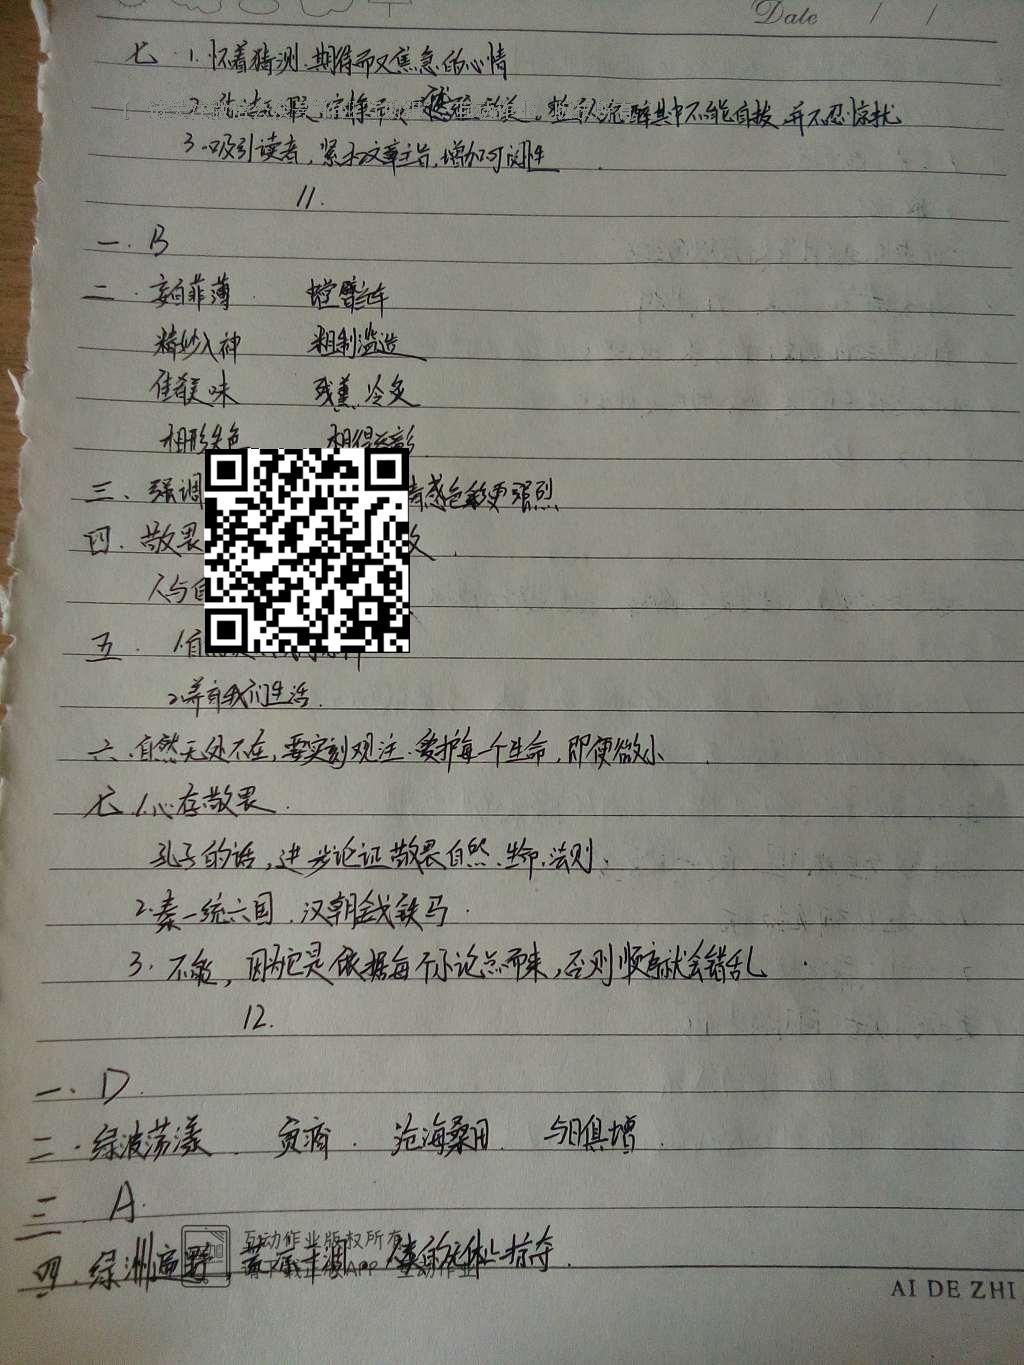 Date / /
七 1.怀着猜测、期待而又焦急的心情
沉醉其中不能自拔,并不忍惊扰
3.吸引读者,紧扣文章主旨,增加可读性
11.
一.B
二.妄自菲薄 螳臂当车
精妙入神 粗制滥造
佳肴美味 残羹冷炙
相形失色 相得益彰
三、强调 情感色彩更强烈
四.敬畏
人与自
五.1自
2.养育我们生活.
六.自然无处不在,要实刻观注.爱护每一个生命,即便微小
七 1.心存敬畏.
孔子的话,进步论证敬畏自然、生命、法则.
2.秦一统六国.汉朝金戈铁马.
3.不能,因为它是依据每个小论点而来,否则顺序就会错乱.
12.
一.D.
二.绿波荡漾. 贡潏. 沧海桑田. 与日俱增.
三 A.
互动作业版权所有
四.绿洲遍野,
AI DE ZHI